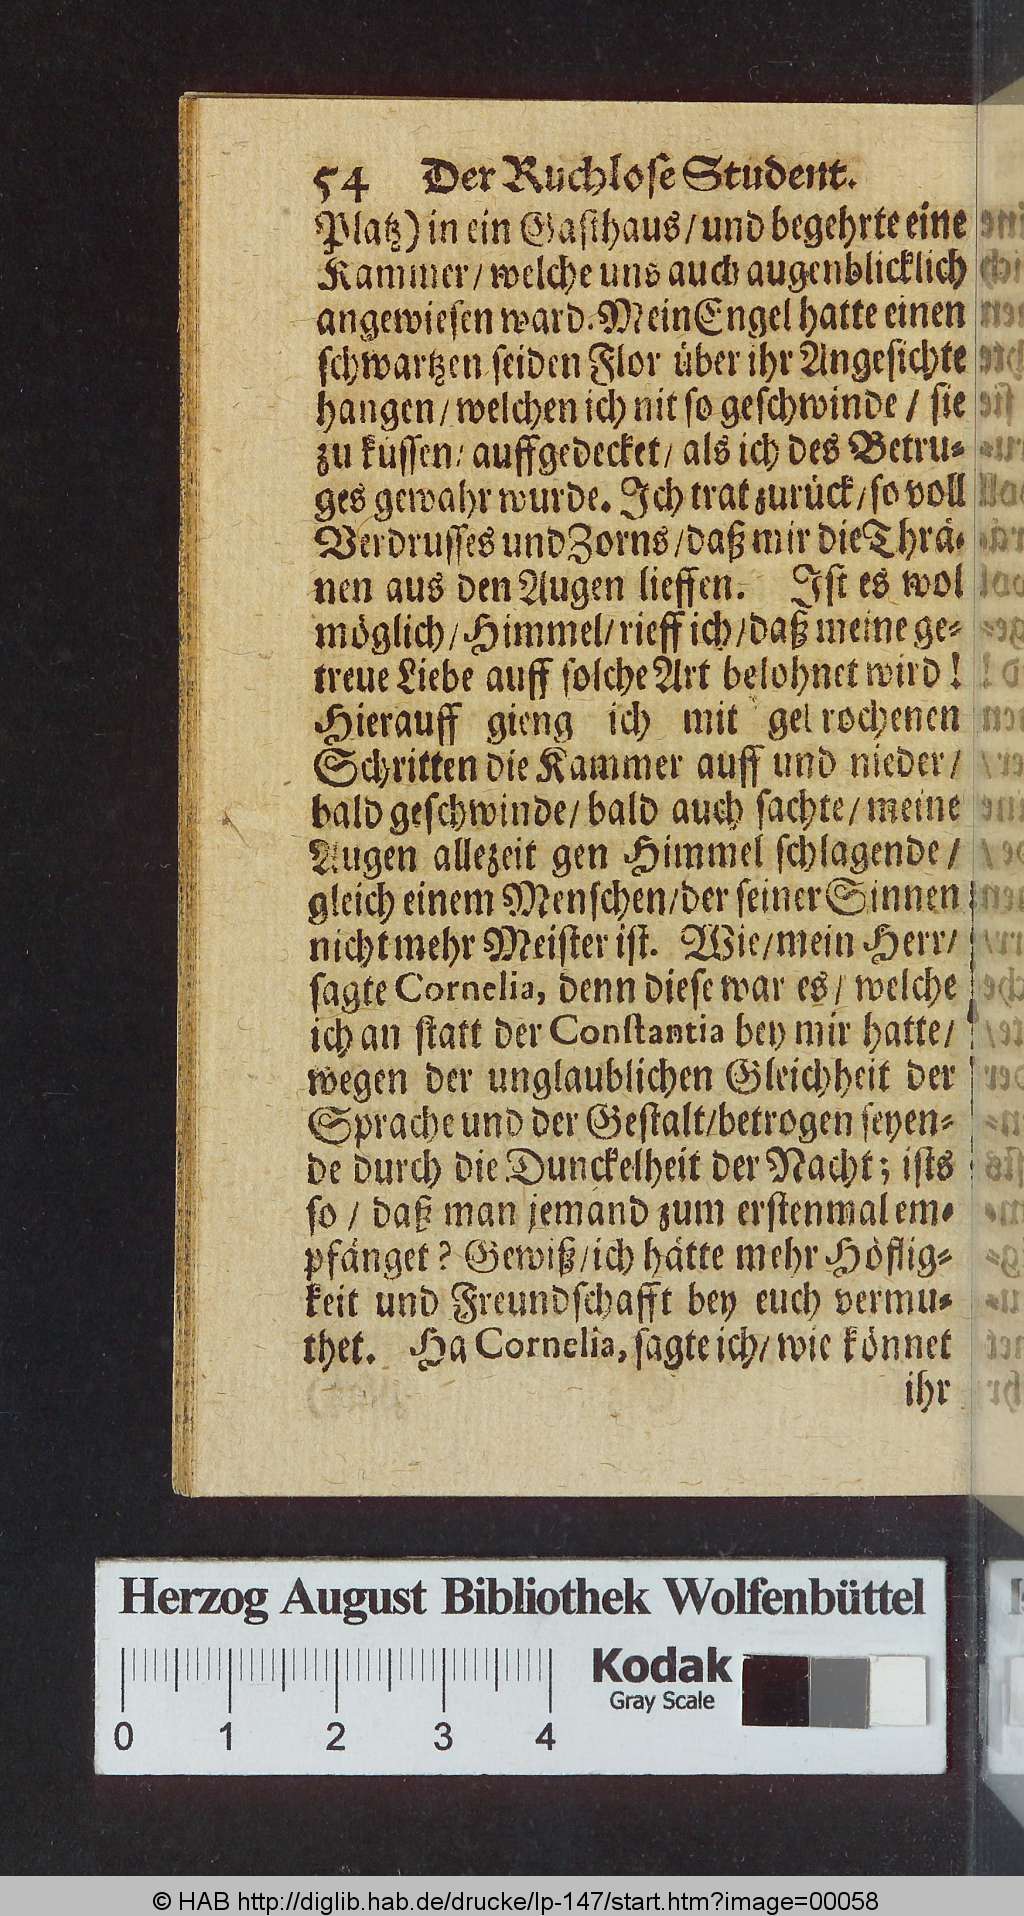 54 Der Ruchlose Student.
Platz) in ein Gasthaus / und begehrte eine
Kammer / welche uns auch augenblicklich
angewiesen ward. Mein Engel hatte einen
schwartzen seiden Flor über ihr Angesichte
hangen / welchen ich nit so geschwinde / sie
zu küssen / auffgedecket / als ich des Betru-
ges gewahr wurde. Ich trat zurück / so voll
Verdrusses und Zorns / daß mir die Thrä-
nen aus den Augen lieffen. Ist es wol
möglich / Himmel / rieff ich / daß meine ge-
treue Liebe auff solche Art belohnet wird!
Hierauff gieng ich mit gebrochenen
Schritten die Kammer auff und nieder /
bald geschwinde / bald auch sachte / meine
Augen allezeit gen Himmel schlagende /
gleich einem Menschen / der seiner Sinnen
nicht mehr Meister ist. Wie / mein Herr /
sagte Cornelia, denn diese war es / welche
ich an statt der Constantia bey mir hatte /
wegen der unglaublichen Gleichheit der
Sprache und der Gestalt / betrogen seyen-
de durch die Dunckelheit der Nacht; ists
so / daß man jemand zum erstenmal em-
pfänget? Gewiß / ich hätte mehr Höflig-
keit und Freundschafft bey euch vermu-
thet. Ha Cornelia, sagte ich / wie könnet
ihr
Herzog August Bibliothek Wolfenbüttel
Kodak
Gray Scale
0 1 2 3 4
© HAB http://diglib.hab.de/drucke/lp-147/start.htm?image=00058